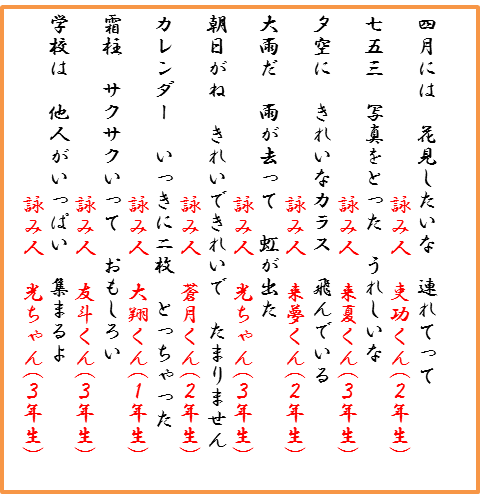 四月には 花見したいな 連れてって
詠み人 吏功くん(2年生)
七五三 写真をとった うれしいな
詠み人 来夏くん(3年生)
夕空に きれいなカラス 飛んでいる
詠み人 来夢くん(2年生)
大雨だ 雨が去って 虹が出た
詠み人 光ちゃん(3年生)
朝日がね きれいできれいで たまりません
詠み人 蒼月くん(2年生)
カレンダー いっきに二枚 とっちゃった
詠み人 大翔くん(1年生)
霜柱 サクサクいって おもしろい
詠み人 友斗くん(3年生)
学校は 他人がいっぱい 集まるよ
詠み人 光ちゃん(3年生)